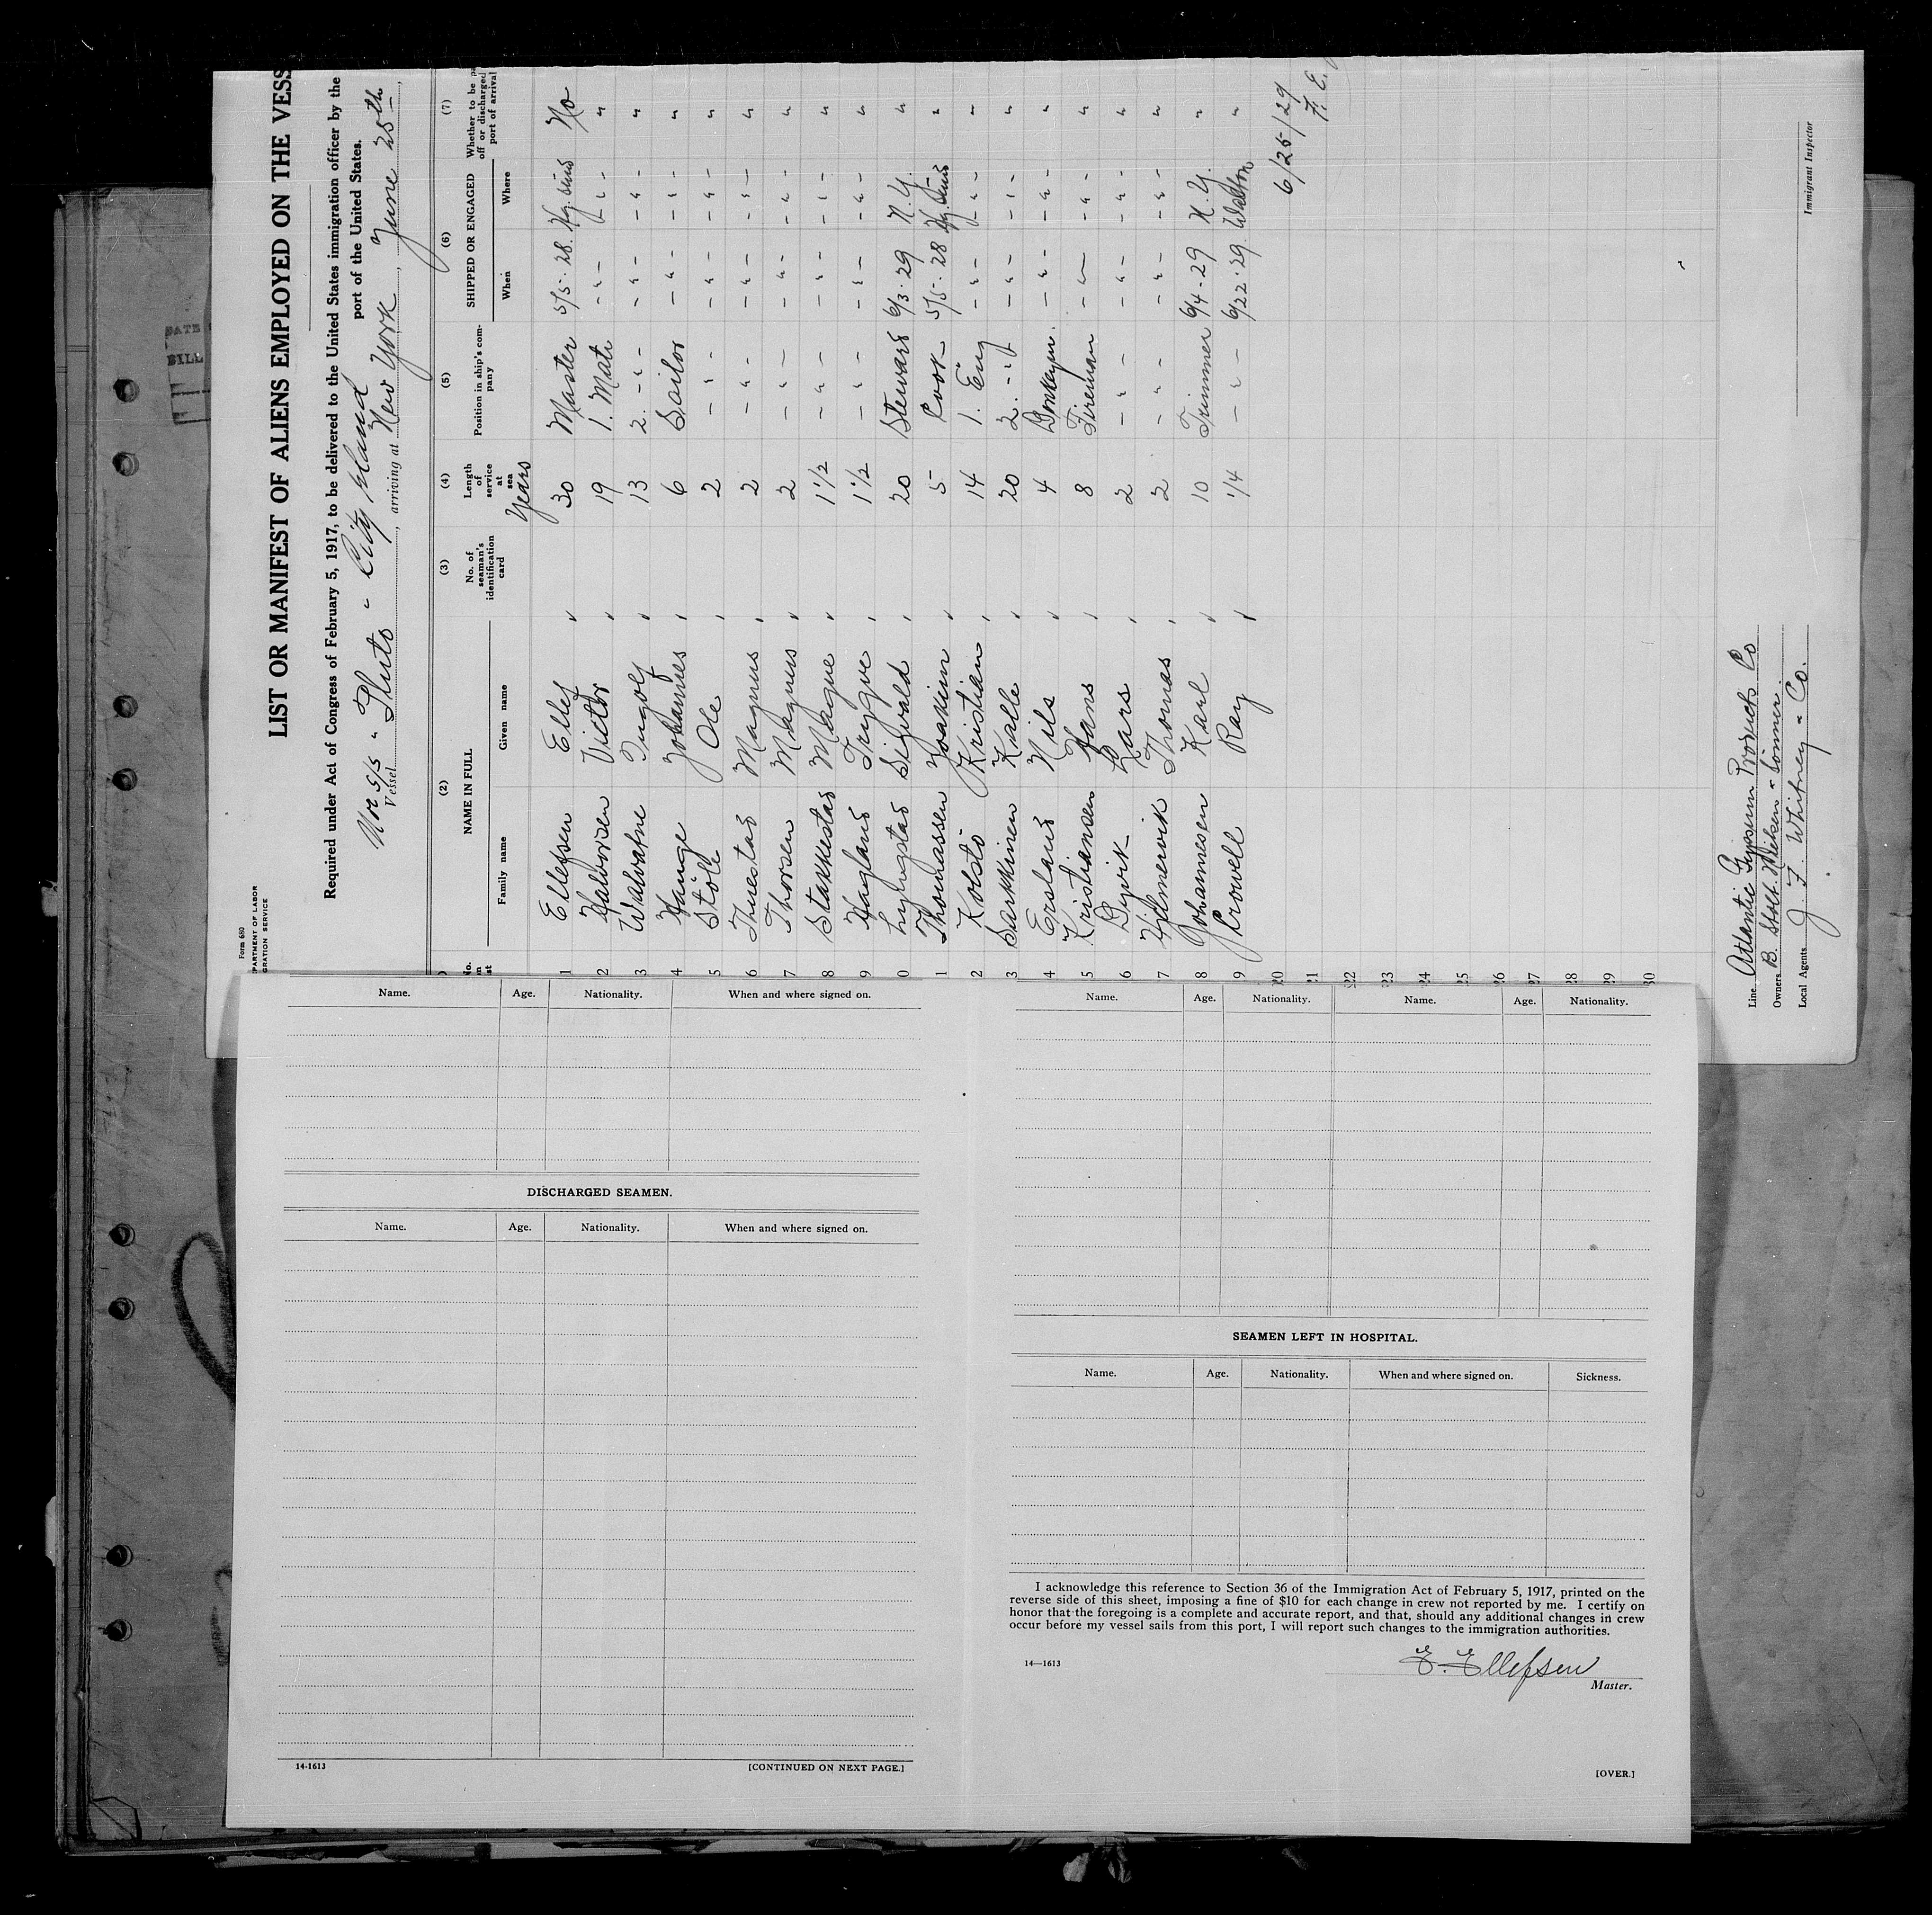 Form 680
PARTMENT OF LABOR
GRATION SERVICE
LIST OR MANIFEST OF ALIENS EMPLOYED ON THE VESS
Required under Act of Congress of February 5, 1917, to be delivered to the United States immigration officer by the
port of the United States.
Nor S/S " Pluto - City Island
Vessel , arriving at New York , June 25th ,
(2) (3) (4) (5) (6) (7)
NAME IN FULL
Family name Given name
No. of seaman's identification card
Length of service at sea
Years
Position in ship's company
SHIPPED OR ENGAGED
When Where
Whether to be
off or discharged
port of arrival
1 Ellefsen Ellef 30 Master 5/5-28. No
2 Halvorsen Victor 19 1. Mate - " - - " - "
3 Ingolf 13 2. - " - - " - - " - "
4 Hauge Johannes 6 Sailor - " - - " - "
5 Stöle Ole 2 - " - - " - - " - "
6 Tuestad Magnus 2 - " - - " - - " - "
7 Thorsen Magnus 2 - " - - " - - " - "
8 Stakkestad Magne 1 1/2 - " - - " - - " - "
9 Hagland Trygve 1 1/2 - " - - " - - " - "
0 Lyngstad Sigvald 20 Steward 6/3-29 N.Y. "
1 Thomassen Joakim 5 Cook 5/5-28 "
2 Kolstö Kristian 14 1. Eng - " - - " - "
3 Sarkkinen Kalle 20 2. - " - - " - - " - "
4 Ersland Nils 4 Donkeym. - " - - " - "
5 Kristiansen Hans 8 Fireman - " - - " - "
6 Dyvik Lars 2 - " - - " - - " - "
7 Thomas 2 - " - - " - - " - "
8 Johannesen Karl 10 Trimmer 6/4-29 N.Y. "
9 Crowell Ray 1/4 - " - 6/22-29 Walton "
20
21
22
23
24
25
26
27
28
29
30
6/25/29
F. E.
Line Atlantic Gypsum Products Co
Owners B. Stolt-Nielsen " Sönner.
Local Agents J. F. Whitney " Co.
Immigrant Inspector
DATE
BILL
Name. Age. Nationality. When and where signed on.
DISCHARGED SEAMEN.
Name. Age. Nationality. When and where signed on.
14-1613 [CONTINUED ON NEXT PAGE.]
Name. Age. Nationality. Name. Age. Nationality.
SEAMEN LEFT IN HOSPITAL.
Name. Age. Nationality. When and where signed on. Sickness.
I acknowledge this reference to Section 36 of the Immigration Act of February 5, 1917, printed on the
reverse side of this sheet, imposing a fine of $10 for each change in crew not reported by me. I certify on
honor that the foregoing is a complete and accurate report, and that, should any additional changes in crew
occur before my vessel sails from this port, I will report such changes to the immigration authorities.
14—1613
E. Ellefsen
Master.
[OVER.]